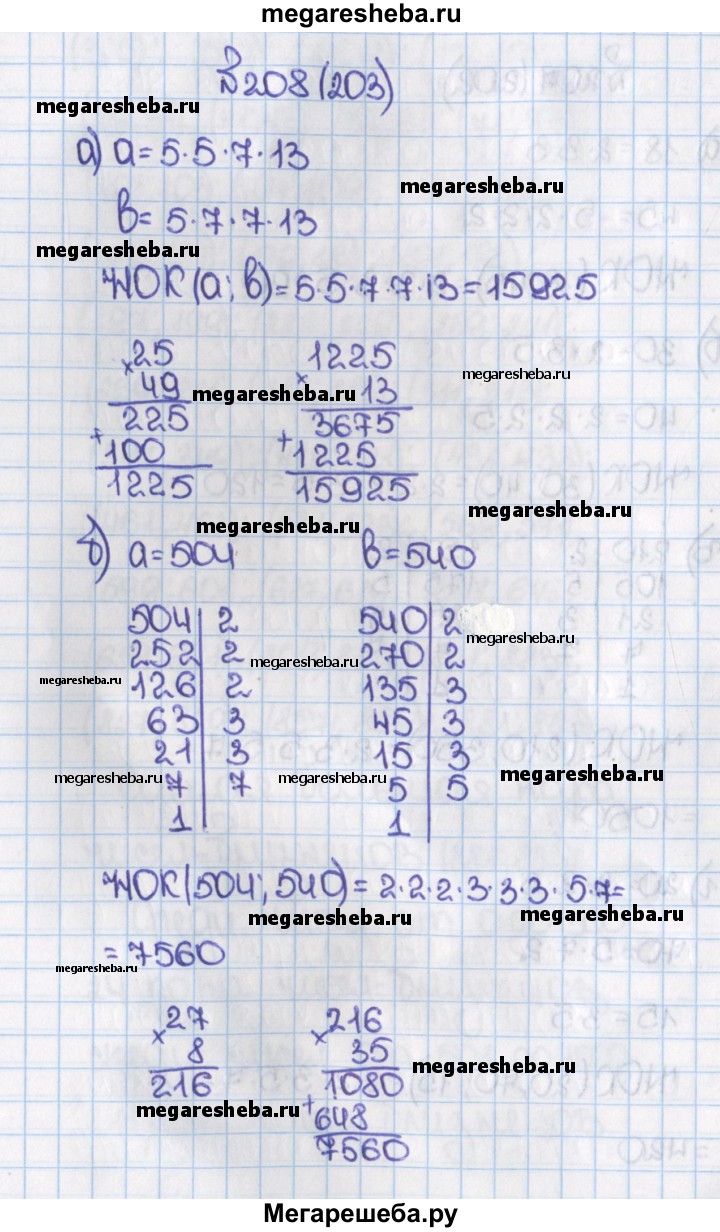 megaresheba.ru
№208 (203)
megaresheba.ru
а) а = 5·5·7·13
megaresheba.ru
в = 5·7·7·13
megaresheba.ru
НОК(а; в) = 5·5·7·7·13 = 15925
× 25
49
225
+ 100
1225
× 1225
13
3675
+ 1225
15925
megaresheba.ru
megaresheba.ru
megaresheba.ru
б) а = 504 в = 540
504 | 2
252 | 2
126 | 2
63 | 3
21 | 3
7 | 7
1 |
540 | 2
270 | 2
135 | 3
45 | 3
15 | 3
5 | 5
1 |
megaresheba.ru
megaresheba.ru
megaresheba.ru
megaresheba.ru
megaresheba.ru
megaresheba.ru
НОК(504; 540) = 2·2·2·3·3·3·5·7=
megaresheba.ru
megaresheba.ru
= 7560
megaresheba.ru
× 27
8
216
× 216
35
1080
+ 648
7560
megaresheba.ru
megaresheba.ru
Мегарешеба.ру